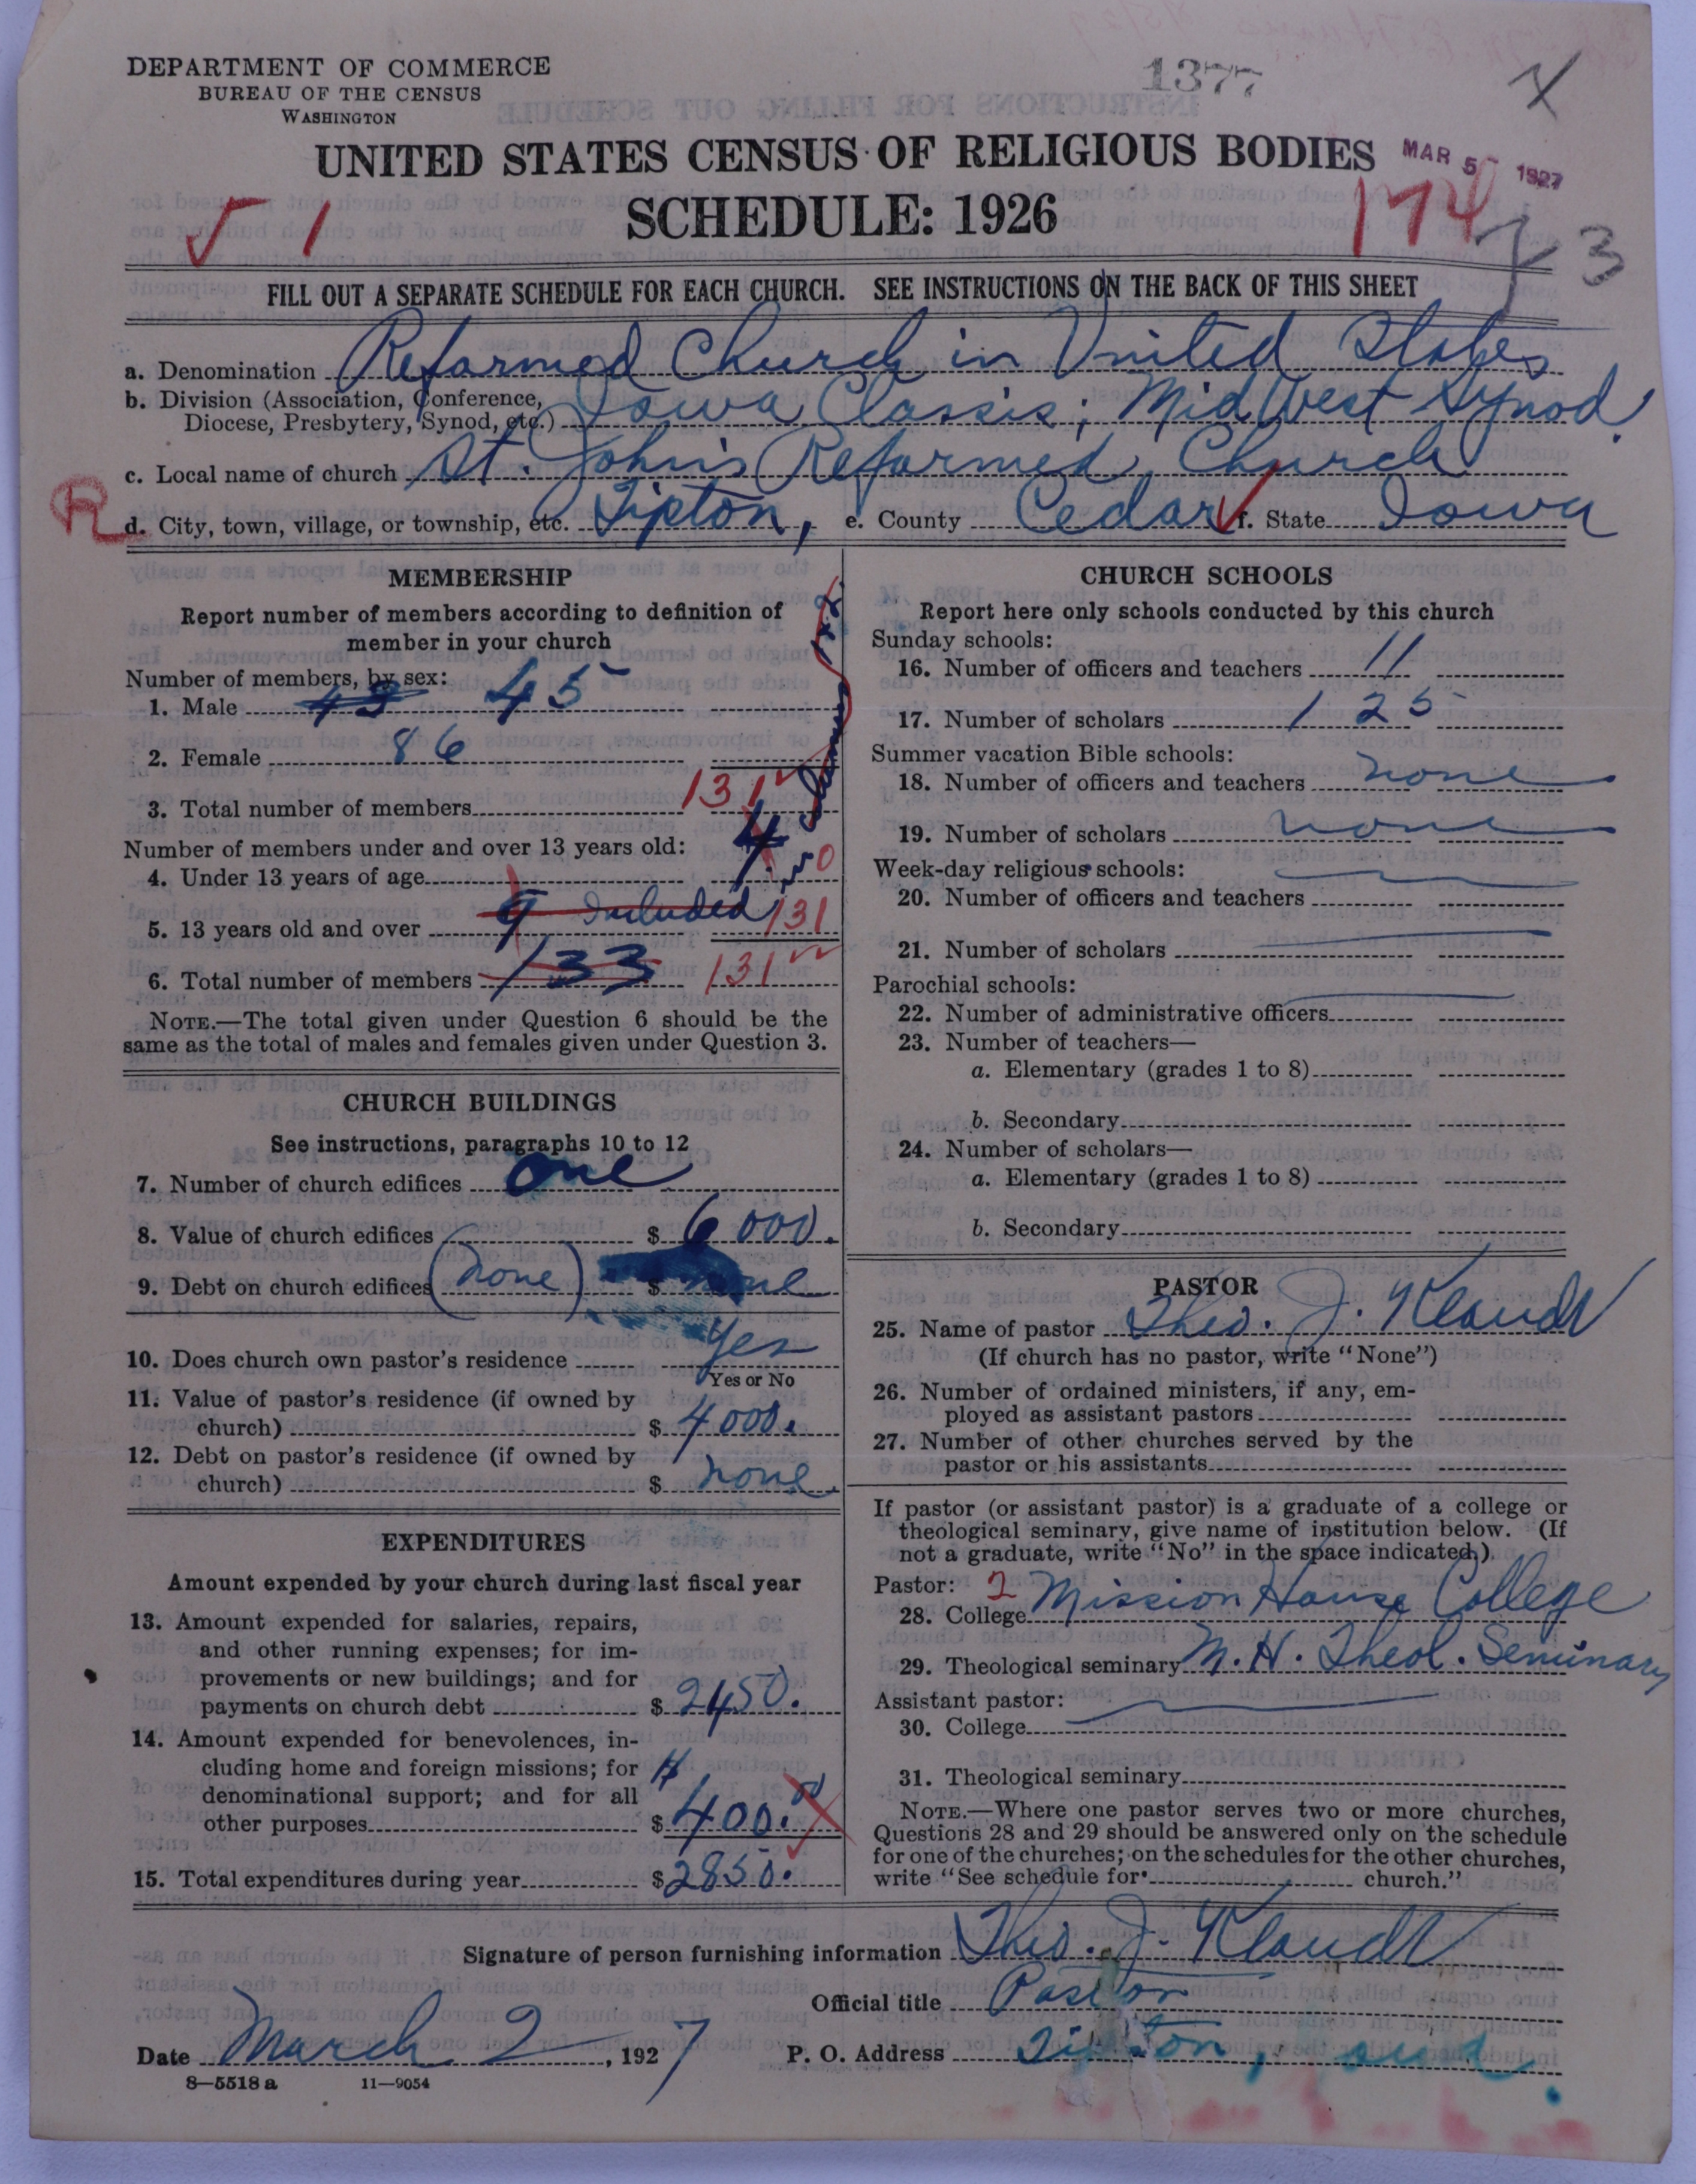 DEPARTMENT OF COMMERCE
BUREAU OF THE CENSUS
WASHINGTON
1377
UNITED STATES CENSUS OF RELIGIOUS BODIES
MAR 5 1927
SCHEDULE: 1926
174
3
1
FILL OUT A SEPARATE SCHEDULE FOR EACH CHURCH. SEE INSTRUCTIONS ON THE BACK OF THIS SHEET
a. Denomination Reformed Church in United States
b. Division (Association, Conference, Diocese, Presbytery, Synod, etc.) Iowa Classis; Mid West Synod.
c. Local name of church St. John's Reformed Church
R
d. City, town, village, or township, etc. Tipton, e. County Cedar f. State Iowa
MEMBERSHIP
Report number of members according to definition of
member in your church
Number of members, by sex:
1. Male 43 45
2. Female 86
3. Total number of members 131
Number of members under and over 13 years old:
4. Under 13 years of age 4 0
5. 13 years old and over 9 Included 131
6. Total number of members 133 131
NOTE.—The total given under Question 6 should be the
same as the total of males and females given under Question 3.
CHURCH BUILDINGS
See instructions, paragraphs 10 to 12
7. Number of church edifices one
8. Value of church edifices $ 6000.
9. Debt on church edifices (none) $ none
10. Does church own pastor's residence Yes
Yes or No
11. Value of pastor's residence (if owned by
church) $ 4000.
12. Debt on pastor's residence (if owned by
church) $ none
EXPENDITURES
Amount expended by your church during last fiscal year
13. Amount expended for salaries, repairs,
and other running expenses; for im-
provements or new buildings; and for
payments on church debt $ 2450.
14. Amount expended for benevolences, in-
cluding home and foreign missions; for
denominational support; and for all
other purposes $ 400.00
15. Total expenditures during year $ 2850.
CHURCH SCHOOLS
Report here only schools conducted by this church
Sunday schools:
16. Number of officers and teachers 11
17. Number of scholars 125
Summer vacation Bible schools:
18. Number of officers and teachers none
19. Number of scholars none
Week-day religious schools:
20. Number of officers and teachers
21. Number of scholars
Parochial schools:
22. Number of administrative officers
23. Number of teachers—
a. Elementary (grades 1 to 8)
b. Secondary
24. Number of scholars—
a. Elementary (grades 1 to 8)
b. Secondary
PASTOR
25. Name of pastor Theo. J. Klaudt
(If church has no pastor, write "None")
26. Number of ordained ministers, if any, em-
ployed as assistant pastors
27. Number of other churches served by the
pastor or his assistants
If pastor (or assistant pastor) is a graduate of a college or
theological seminary, give name of institution below. (If
not a graduate, write "No" in the space indicated.)
Pastor: 2
28. College Mission House College
29. Theological seminary M. H. Theol. Seminary
Assistant pastor:
30. College
31. Theological seminary
NOTE.—Where one pastor serves two or more churches,
Questions 28 and 29 should be answered only on the schedule
for one of the churches; on the schedules for the other churches,
write "See schedule for church."
Signature of person furnishing information Theo. J. Klaudt
Official title Pastor
Date March 2, 1927 P. O. Address Tipton,
8—5518 a 11—9054